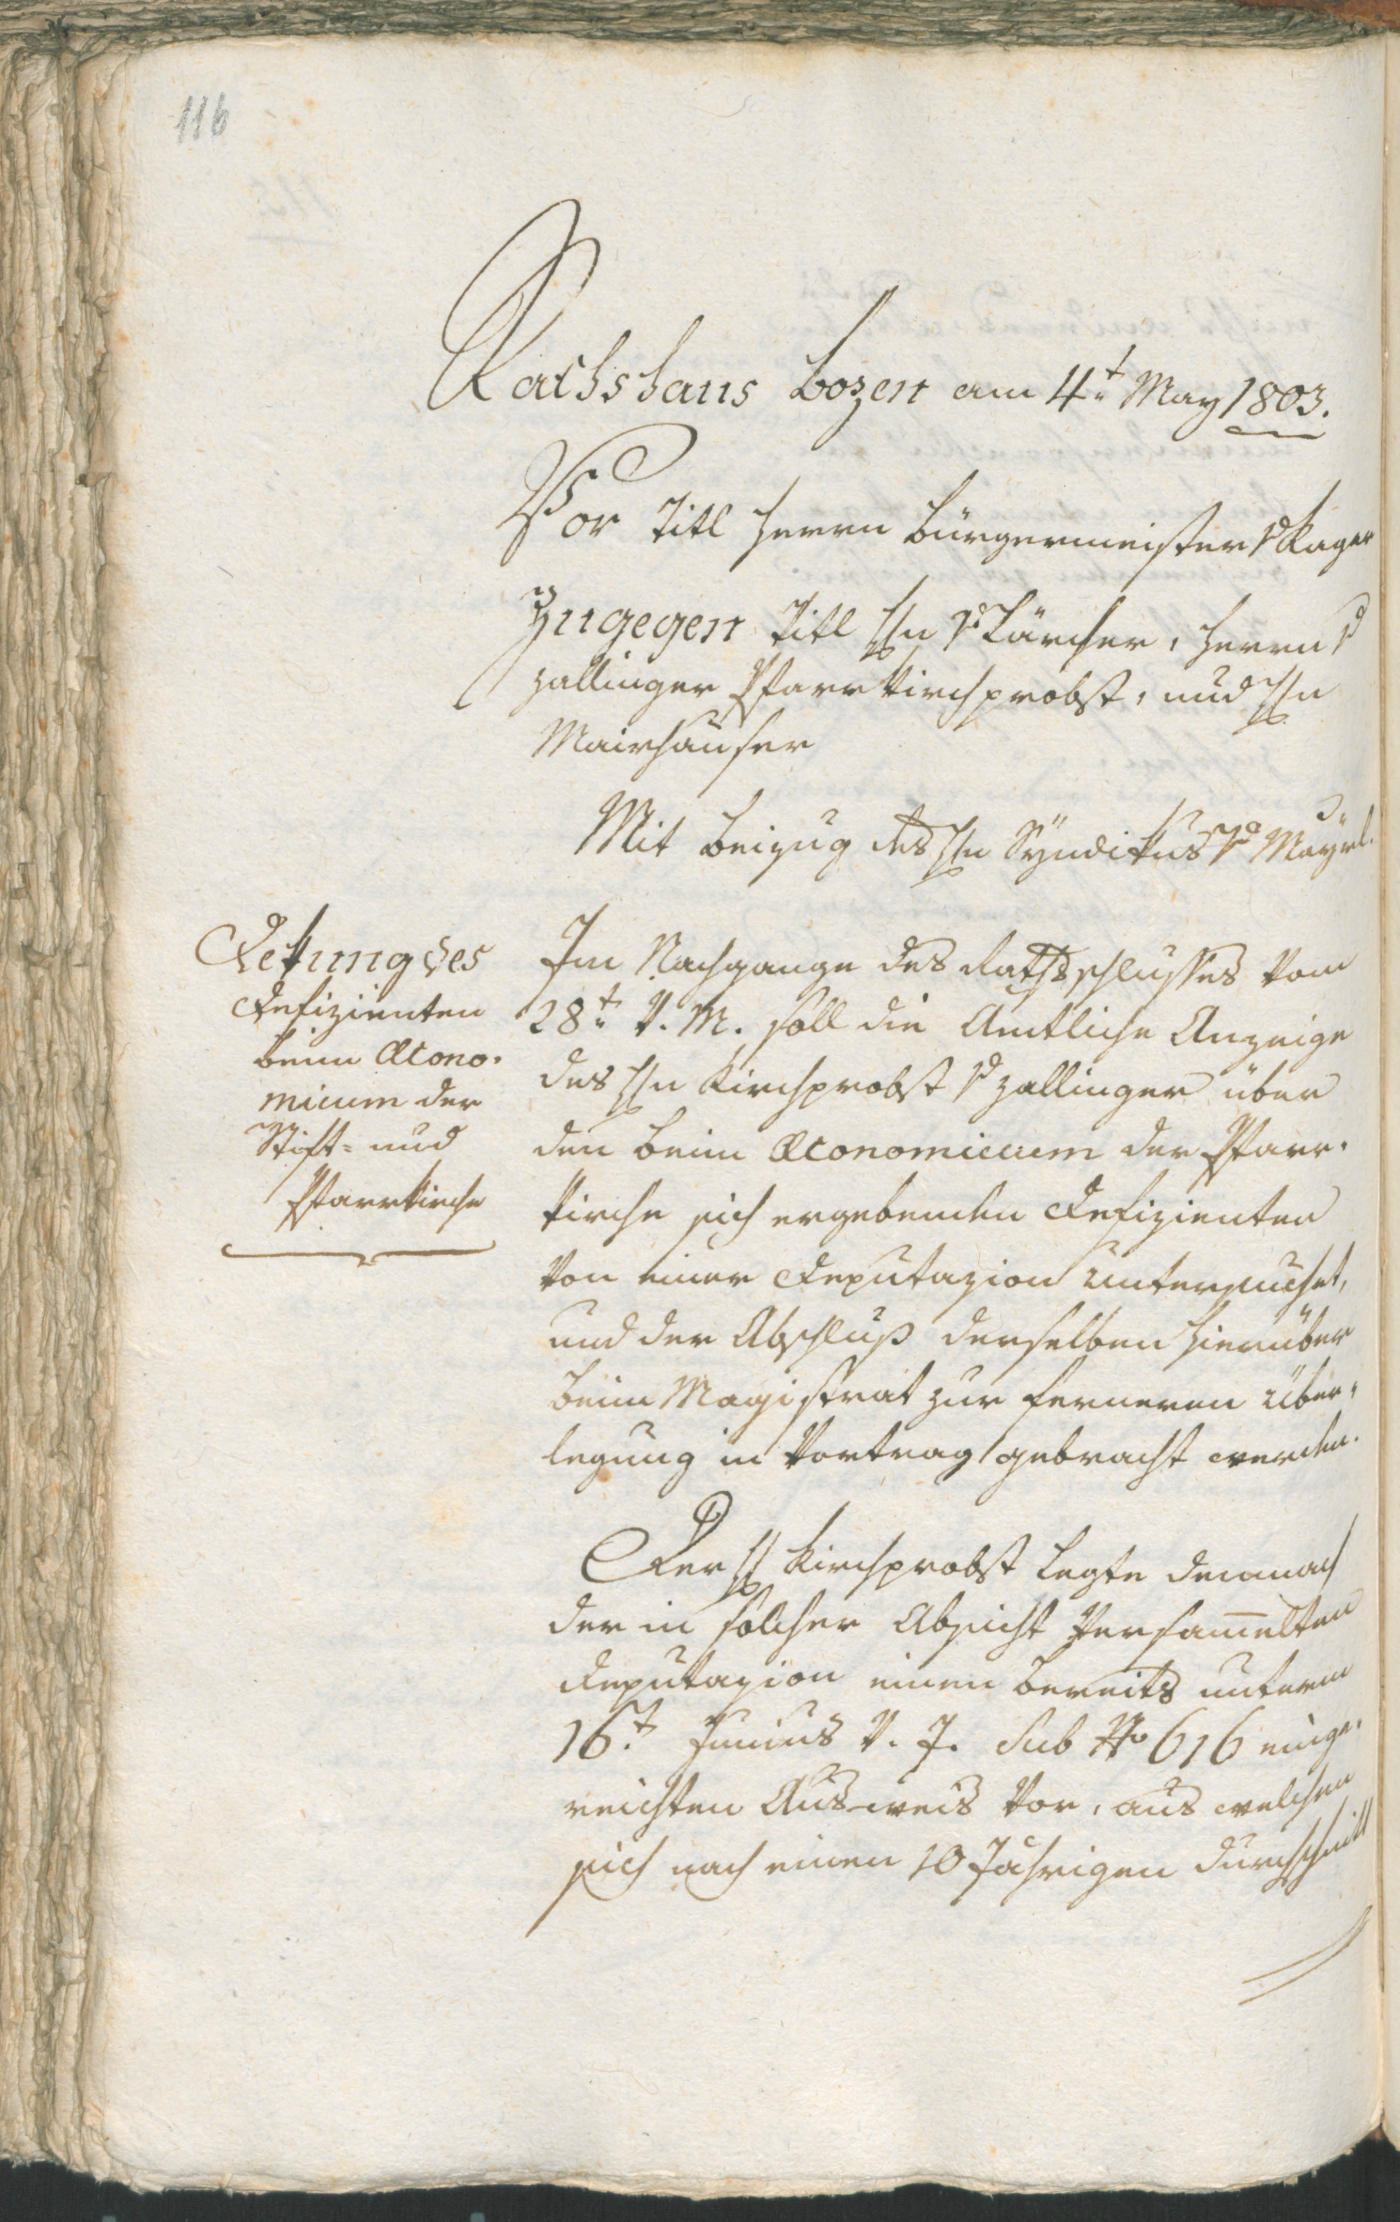 116
Rathshaus Bozen am 4t May 1803.
Vor Titl Herrn Bürgermeister v Kager
Zugegen Titl Hn v Lärcher, Herrn v
Zallinger Pfarrkirchprobst, und Hn
Mairhauser
Mit Beizug des Hn Syndikus Mayrl.
Dekung des
Defizienten
beim Œcono-
micum der
Stift- und
Pfarrkirche
Im Nachgange des Rathsschlusses vom
28t v. M. soll die Amtliche Anzeige
des Hn Kirchprobst v Zallinger über
den beim Œconomicum der Pfarr-
kirche sich ergebenden Defizienten
von einer Deputazion untersuchet,
und der Abschluß derselben hierüber
beim Magistrat zur ferneren Über-
legung in Vortrag gebracht werden.
Der H Kirchprobst legte demnach
der in solcher Absicht versam̅elten
Deputazion einen bereits unterm
16t Junius v. J. sub No 616 einge-
reichten Ausweis vor, aus welchen
sich nach einen 10 Jährigen Durchschnitt